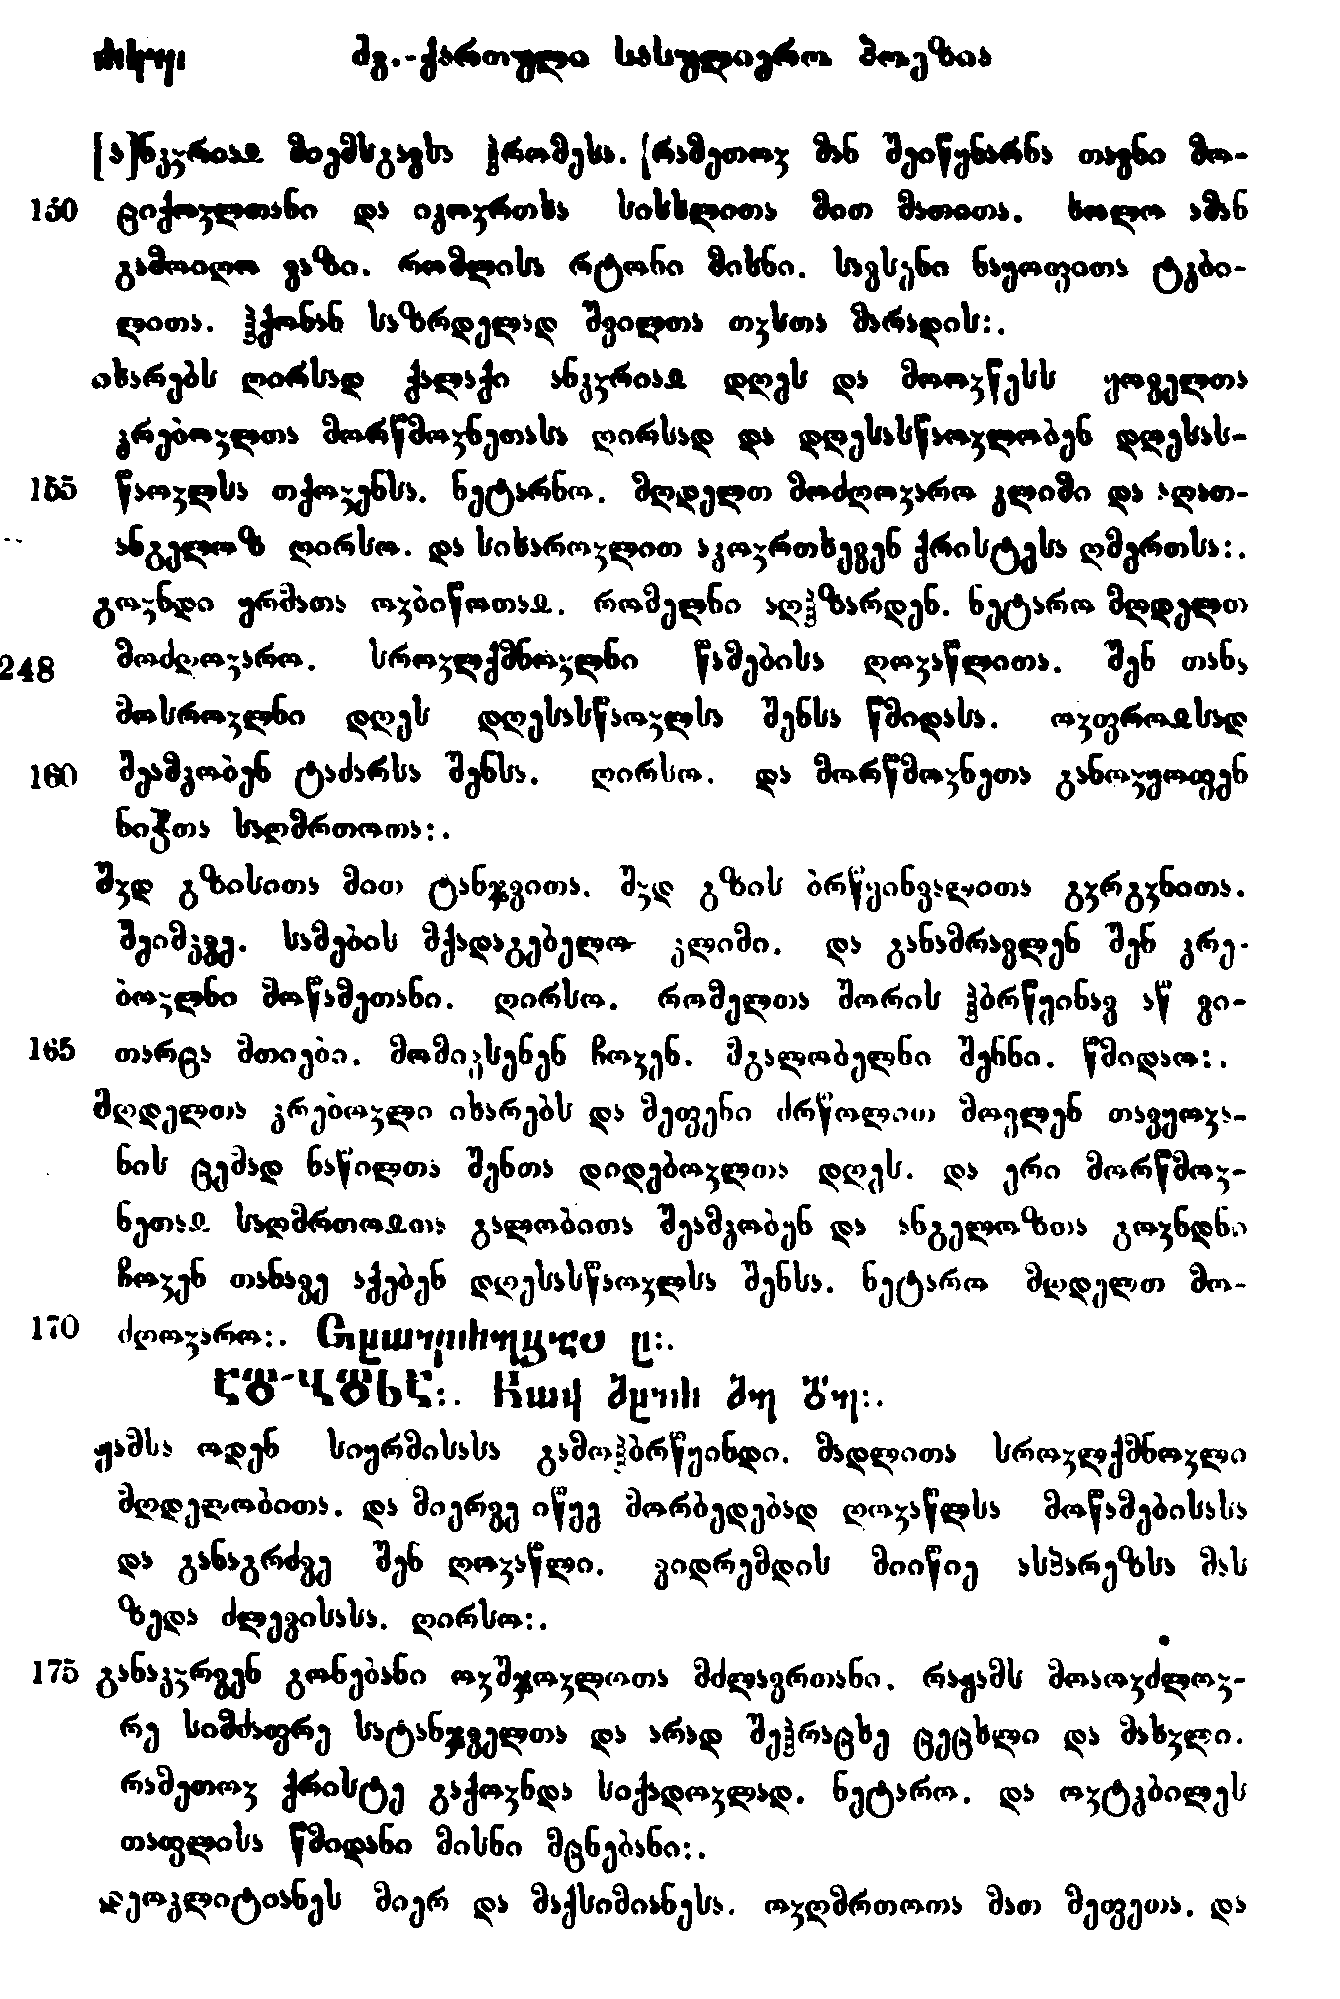 ძგ.-ქართული სასულიერო პოეზია
[ა]ნკჳრიაჲ მიემსგავსა ჰრომესა. რამეთოჳ მან შეიწყნარნა თავნი მო-
150 ციქოჳლთანი და იკოჳრთხა სისხლითა მით მათითა. ხოლო ამან
გამოიღო ვაზი. რომლისა რტონი მისნი. სავსენი ნაყოფითა ტკბი-
ლითა. ჰქონან საზრდელად შვილთა თჳსთა მარადის:.
იხარებს ღირსად ქალაქი ანკჳრიაჲ დღეს და მოოჳწესს ყოველთა
კრებოჳლთა მორწმოჳნეთასა ღირსად და დღესასწაოჳლობენ დღესას-
155 წაოჳლსა თქოჳენსა. ნეტარნო. მღდელთ მოძღოჳარო კლიმი და აღათ-
ანგელოზ ღირსო. და სიხაროჳლით აკოჳრთხევენ ქრისტესა ღმერთსა:.
გოჳნდი ყრმათა ოჳბიწოთაჲ. რომელნი აღჰზარდენ. ნეტარო მღდელთ
248 მოძღოჳარო. სროჳლქმნოჳლნი წამებისა ღოჳაწლითა. შენ თანა
მოსროჳლნი დღეს დღესასწაოჳლსა შენსა წმიდასა. ოჳფროჲსად
160 შეამკობენ ტაძარსა შენსა. ღირსო. და მორწმოჳნეთა განოჳყოფენ
ნიჭთა საღმრთოთა:.
შჳდ გზისითა მით ტანჯვითა. შჳდ გზის ბრწყინვალითა გჳრგჳნითა.
შეიმკვე. სამების მქადაგებელო კლიმი. და განამრავლენ შენ კრე-
ბოჳლნი მოწამეთანი. ღირსო. რომელთა შორის ჰბრწყინავ აწ ვი-
165 თარცა მთიები. მომიჴსენენ ჩოჳენ. მგალობელნი შენნი. წმიდაო:.
მღდელთა კრებოჳლი იხარებს და მეფენი ძრწოლით მოვლენ თავყოჳა-
ნის ცემად ნაწილთა შენთა დიდებოჳლთა დღეს. და ერი მორწმოჳ-
ნეთაჲ საღმრთოჲთა გალობითა შეამკობენ და ანგელოზთა გოჳნდნი
ჩოჳენ თანავე აქებენ დღესასწაოჳლსა შენსა. ნეტარო მღდელთ მო-
170 ძღოჳარო:.
ჟამსა ოდენ სიყრმისასა გამოჰბრწყინდი. მადლითა სროჳლქმნოჳლი
მღდელობითა. და მიერვე იწყე მორბედებად ღოჳაწლსა მოწამებისასა
და განაგრძვე შენ ღოჳაწლი. ვიდრემდის მიიწიე ასპარეზსა მას
ზედა ძლევისასა. ღირსო:.
175 განაკჳრვენ გონებანი ოჳშჯოჳლოთა მძლავრთანი. რაჟამს მოაოჳძლოჳ-
რე სიმძაფრე სატანჯველთა და არად შეჰრაცხე ცეცხლი და მახჳლი.
რამეთოჳ ქრისტე გაქოჳნდა სიქადოჳლად. ნეტარო. და ოჳტკბილეს
თაფლისა წმიდანი მისნი მცნებანი:.
დეოკლიტიანეს მიერ და მაქსიმიანესა. ოჳღმრთოთა მათ მეფეთა. და